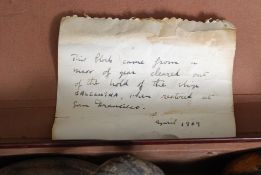 This block came from a
mass of gear cleared out
of the hold of the ship
BALCLUTHA, when restored at
San Francisco.
April 1967